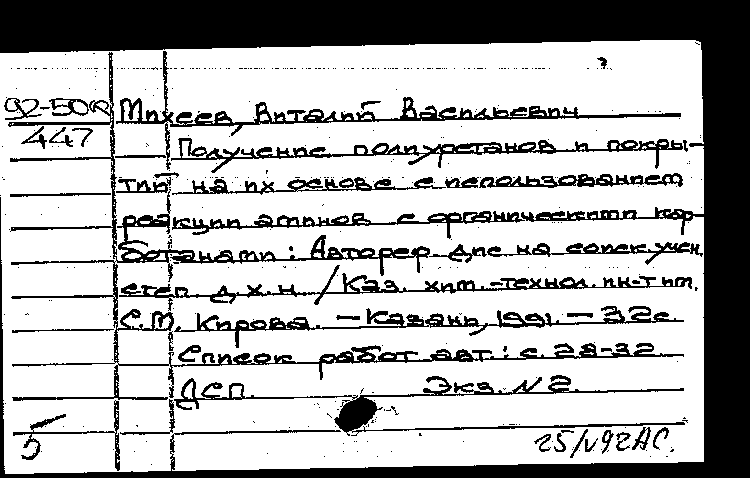 92-50R Михеев, Виталий Васильевич
447
Получение полиуретанов и покры-
тий на их основе с использованием
реакции аминов с органическими кар-
бонатами: Автореф. дис на соиск. учен.
степ. д. х. н. / Каз. хим.-технол. ин-т им.
С.М. Кирова. – Казань, 1991. – 32с.
Список работ авт.: с. 28-32
ДСП. Экз. N 2.
5 25/V92АС.